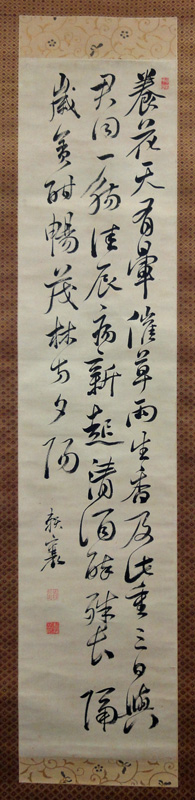 養花天有暈催草雨生香及此重三日與
君同一觴佳辰病新起清酒醉殊長隔
歲酣暢茂林夕陽
賴襄